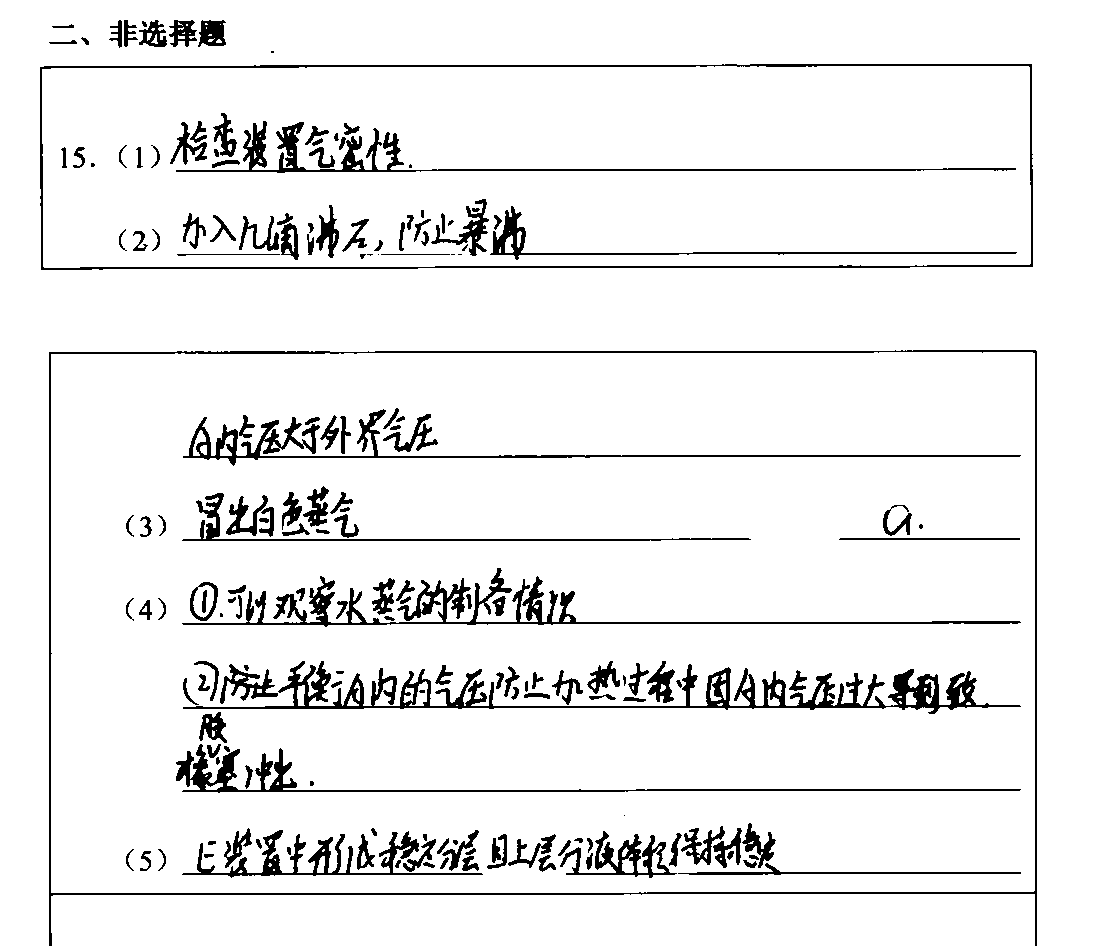 二、非选择题
15.（1）检查装置气密性.
（2）加入几滴沸石，防止暴沸
A内气压大于外界气压
（3）冒出白色蒸气 a.
（4）①.可以观察水蒸气的制备情况
②防止平衡A内的气压防止加热过程中因A内气压过大导致
橡胶塞冲出.
（5）E装置中形成稳定分层且上层液体积保持稳定